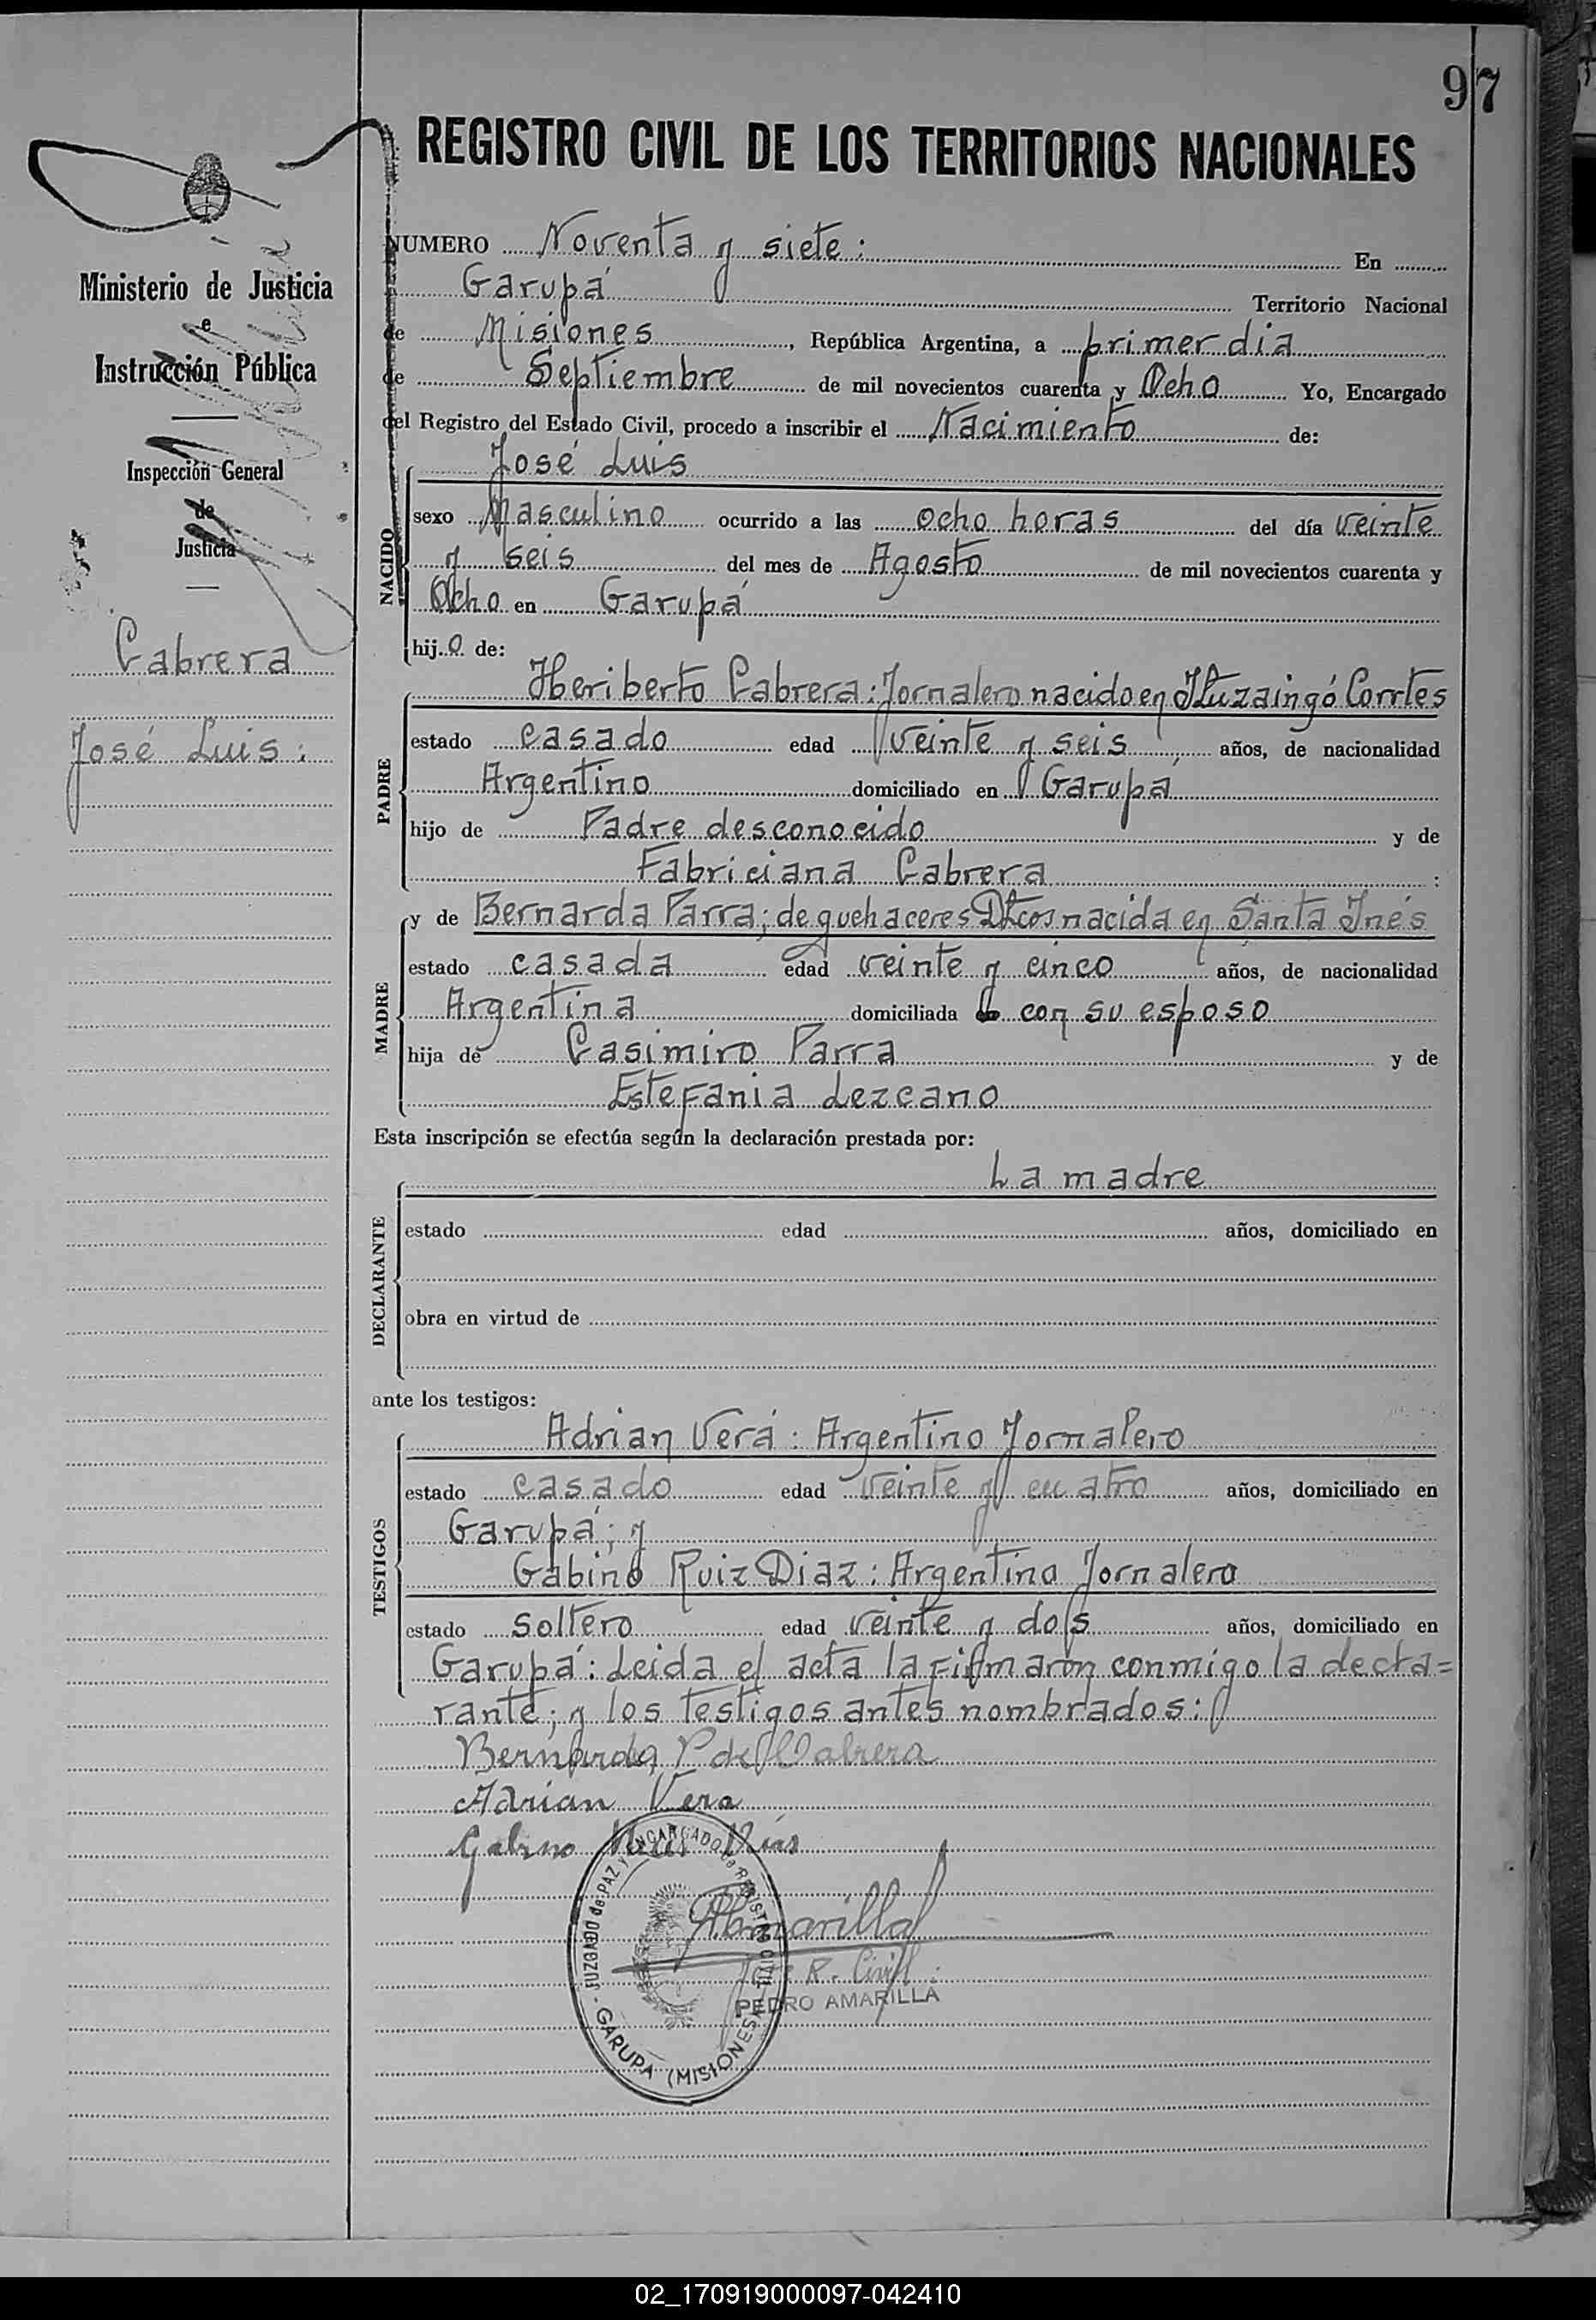 97
REGISTRO CIVIL DE LOS TERRITORIOS NACIONALES
Ministerio de Justicia
e
Instrucción Pública
Inspección General
de
Justicia
Cabrera
José Luis :
NUMERO Noventa y siete : En
Garupá Territorio Nacional
de Misiones , República Argentina, a primer dia
de Septiembre de mil novecientos cuarenta y Ocho Yo, Encargado
del Registro del Estado Civil, procedo a inscribir el Nacimiento de:
José Luis
NACIDO
sexo Masculino ocurrido a las ocho horas del día veinte
y seis del mes de Agosto de mil novecientos cuarenta y
Ocho en Garupá
hij o de:
PADRE
Heriberto Cabrera : Jornalero nacido en Ituzaingó Corrtes
estado casado edad veinte y seis años, de nacionalidad
Argentino domiciliado en Garupá
hijo de Padre desconocido y de
Fabriciana Cabrera :
MADRE
y de Bernarda Parra; de quehaceres Dtcos nacida en Santa Inés
estado casada edad veinte y cinco años, de nacionalidad
Argentina domiciliada con su esposo
hija de Casimiro Parra y de
Estefania Lezcano
Esta inscripción se efectúa según la declaración prestada por:
La madre
DECLARANTE
estado edad años, domiciliado en
obra en virtud de
ante los testigos:
TESTIGOS
Adrian Verá : Argentino Jornalero
estado casado edad veinte y cuatro años, domiciliado en
Garupá ; y
Gabino Ruiz Diaz : Argentino Jornalero
estado soltero edad veinte y dos años, domiciliado en
Garupá : Leida el acta la firmaron conmigo la decla=
rante; y los testigos antes nombrados:
Bernarda P de Cabrera
Adrian Vera
Gabino Ruis Dias
JUZGADO de PAZ y ENCARGADO de REGISTRO CIVIL
GARUPA (MISIONES)
PAmarilla
R. Civil :
PEDRO AMARILLA
02_170919000097-042410